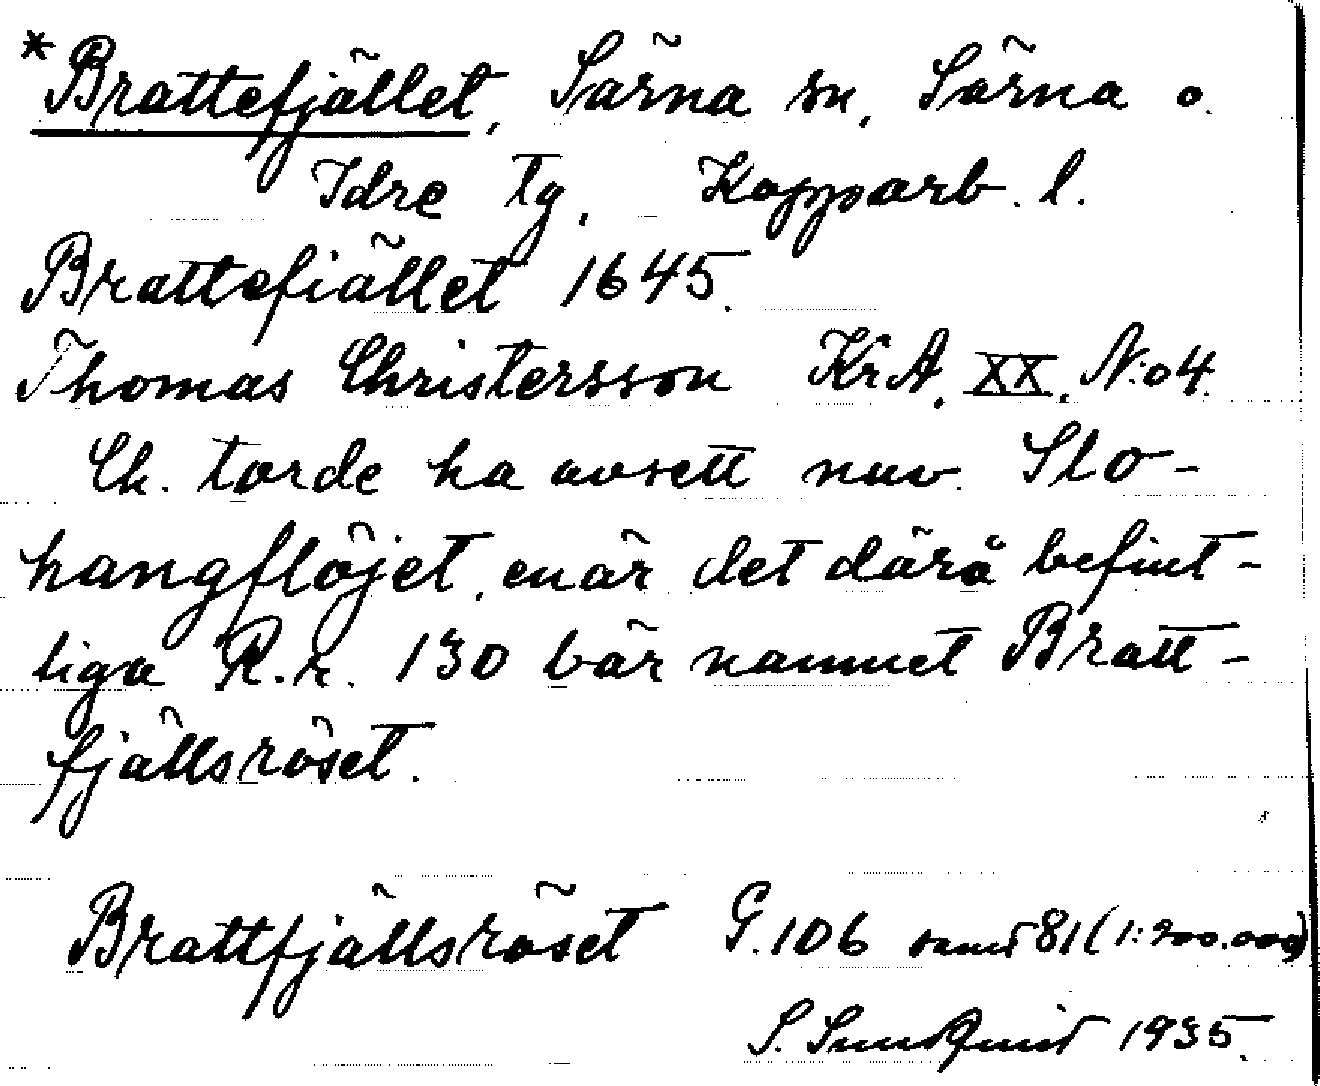 *Brattefjället, Särna sn, Särna o.
Idre tg, Kopparb. l.
Brattefiället 1645.
Thomas Christersson KrA. XX. N:o 4.
Ch. torde ha avsett nuv. Slo-
hangflöjet, enär det därå befint-
liga R.r. 130 bär namnet Bratt-
fjällsröset.
Brattfjällsröset G. 106 samt 81 (1:200.000)
S. Sundquist 1935.